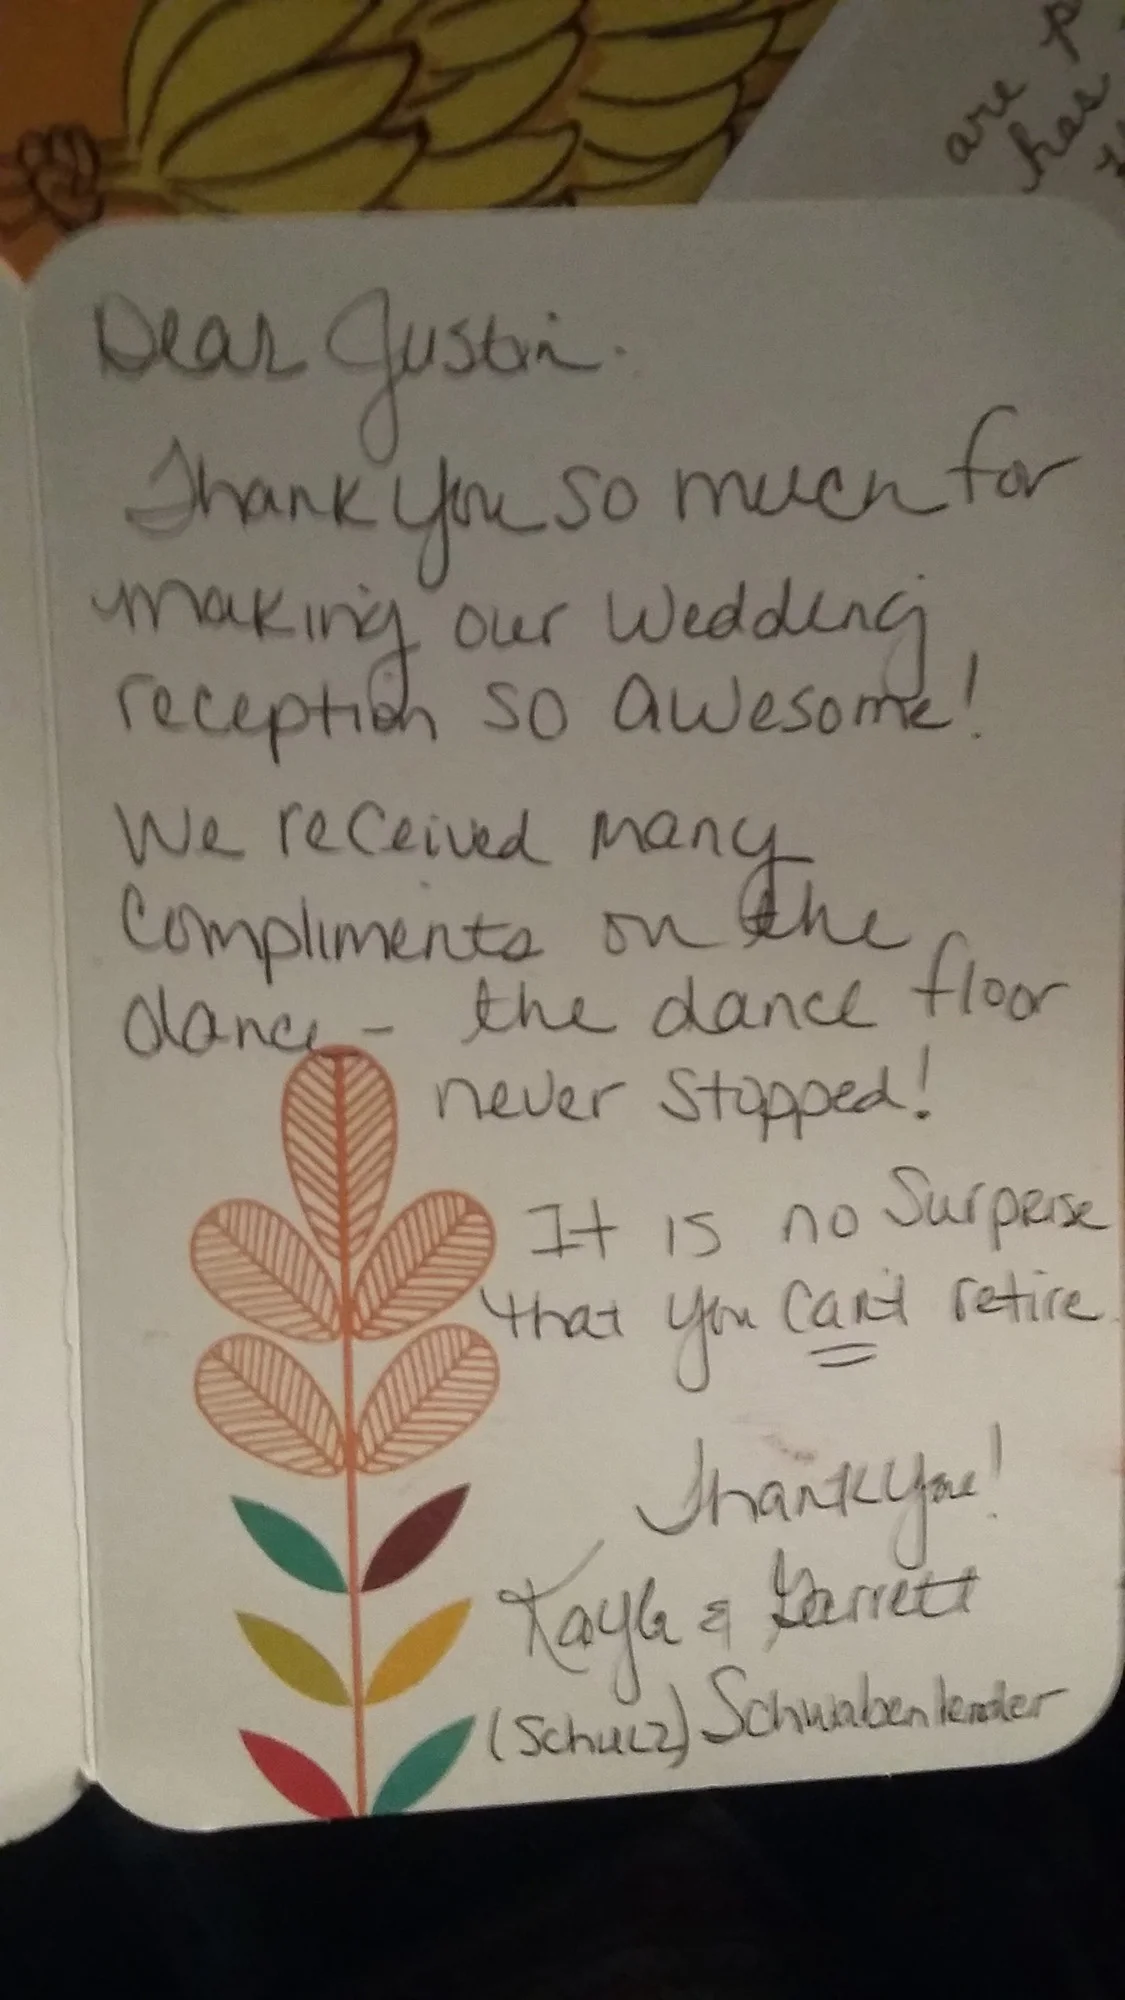 are P
has
Dear Justin.
Thank you so much for
making our wedding
reception so awesome!
We received many
compliments on the
dance - the dance floor
never stopped!
It is no surprise
that you can't retire.
Thank you!
Kayla & Garrett
(Schulz) Schwabenlender